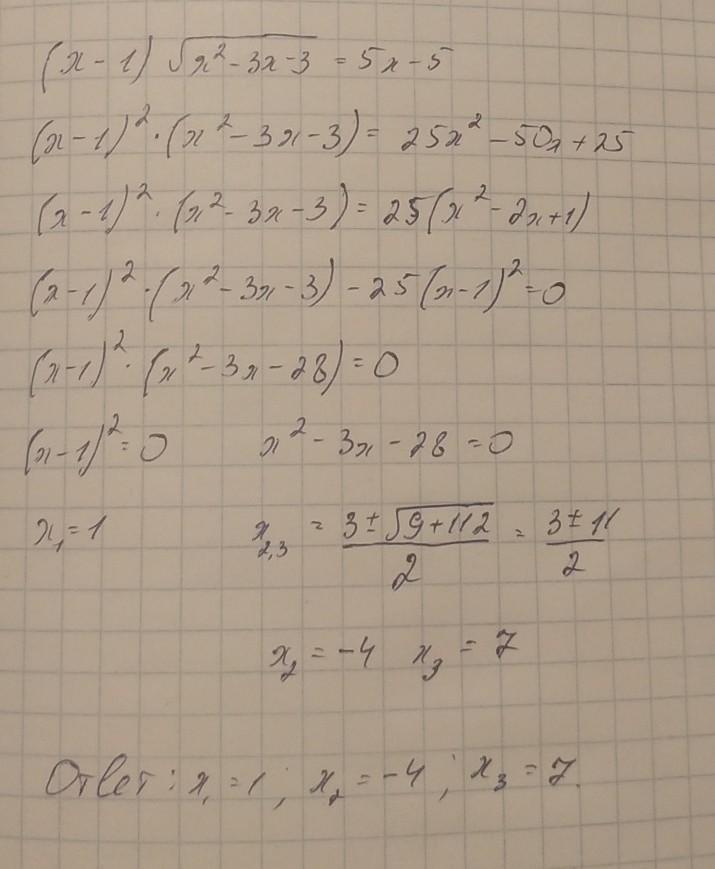 (x-1) √(x²-3x-3) = 5x-5
(x-1)²·(x²-3x-3) = 25x²-50x+25
(x-1)²·(x²-3x-3) = 25(x²-2x+1)
(x-1)²·(x²-3x-3) - 25(x-1)² = 0
(x-1)²·(x²-3x-28) = 0
(x-1)² = 0 x²-3x-28 = 0
x₁ = 1 x₂,₃ = (3±√(9+112))/2 = (3±11)/2
x₂ = -4 x₃ = 7
Ответ: x₁ = 1; x₂ = -4; x₃ = 7.